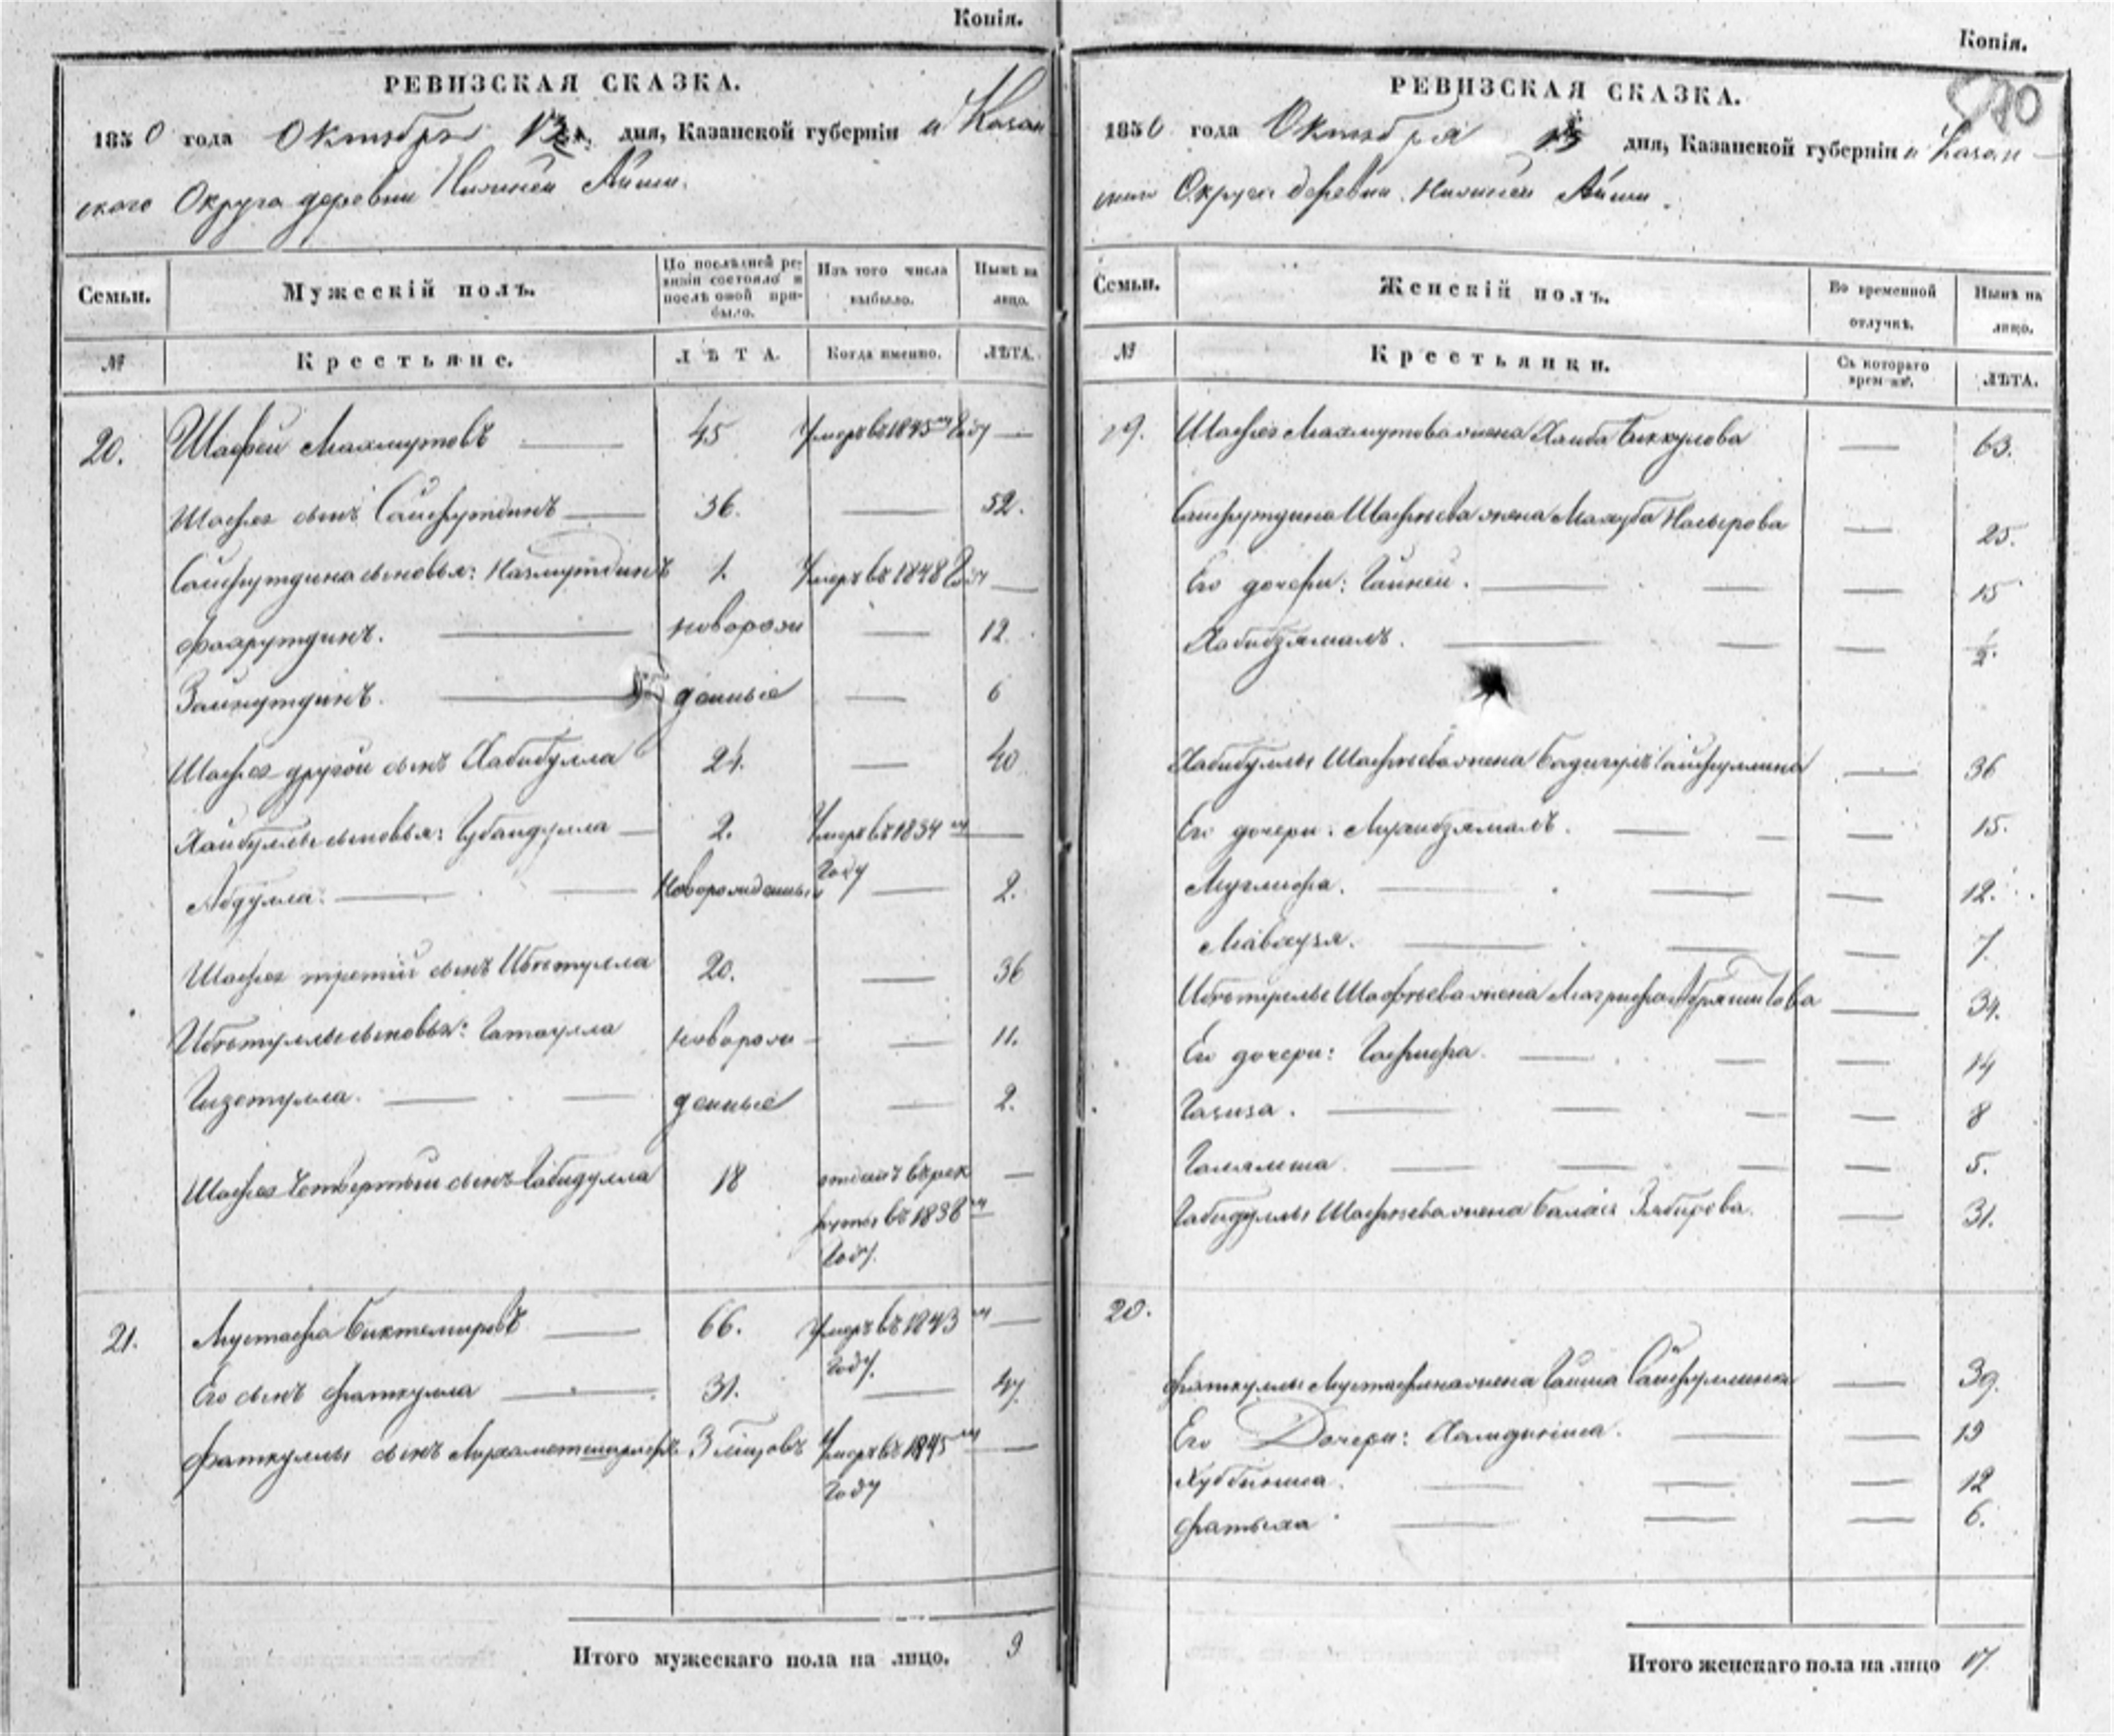 Копія.
РЕВИЗСКАЯ СКАЗКА.
1850 года Октября 13 дня, Казанской губерніи и Казан
скаго Округа деревни Нижней Айши.
Семьи. Мужескій полъ. По послѣдней ревизіи состояло и послѣ оной прибыло. Изъ того числа выбыло. Нынѣ на лицо.
№ Крестьяне. ЛѢТА. Когда именно. ЛѢТА.
20. Шафей Махмутовъ — 45 Умеръ въ 1845 м Году —
Шафея сынъ Сайфутдинъ — 36. — 52.
Сайфутдина сыновья: Назмутдинъ 1. Умеръ въ 1848 Году —
Фахрутдинъ. — новорож — 12.
Зайнутдинъ. — денные — 6
Шафея другой сынъ Хабибулла 24. — 40
Хабибуллы сыновья: Губайдулла — 2. Умеръ въ 1834 м —
Году
Абдулла. — Новорожденный — 2.
Шафея третій сынъ Ибетулла 20. — 36
Ибетуллы сыновья: Гатаулла новорож — — 11.
Гизетулла. — денные — 2.
Шафея четвертый сынъ Габидулла 18 отданъ въ рек —
руты въ 1838 м
Году.
21. Мустафа Биктемировъ — 66. Умеръ въ 1843 м —
Году.
Его сынъ Фаткулла — 31. — 47
Фаткуллы сынъ 3 Умеръ въ 1845 м —
Году
Итого мужескаго пола на лицо. 9
Копія.
РЕВИЗСКАЯ СКАЗКА.
1850 года Октября 13 дня, Казанской губерніи и Казан
скаго Округа деревни Нижней Айши.
Семьи. Женскій полъ. Во временной отлучкѣ. Нынѣ на лицо.
№ Крестьянки. Съ котораго времени. ЛѢТА.
19. Шафея Махмутова жена Хаиба Биккулова — 63.
Сайфутдина Шафѣева жена Махуба Насырова — 25.
Его дочери: Гайней. — 15
Хабибзямалъ. — ½.
Хабибуллы Шафѣева жена Бадигулъ Сайфуллина — 36
Его дочери: Мухибзямалъ. — 15.
Муглифа. — 12.
Мавлузя. — 7.
Ибетуллы Шафѣева жена Магрифа — 34.
Его дочери: Гафифа. — 14
Газиза. — 8
Галялета — 5.
Габидуллы Шафѣева жена Зябирова. — 31.
20.
Фаткуллы Мустафина жена Гайша Сайфуллина — 39.
Его Дочери: Хамдиниса. — 19
Хуббиниса. — 12
Фатыха — 6.
Итого женскаго пола на лицо 17